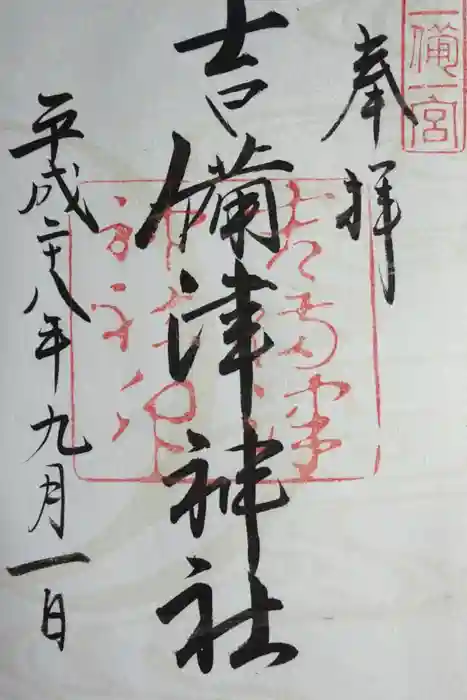 一備一宮
奉拝
吉備津神社
平成二十八年九月一日